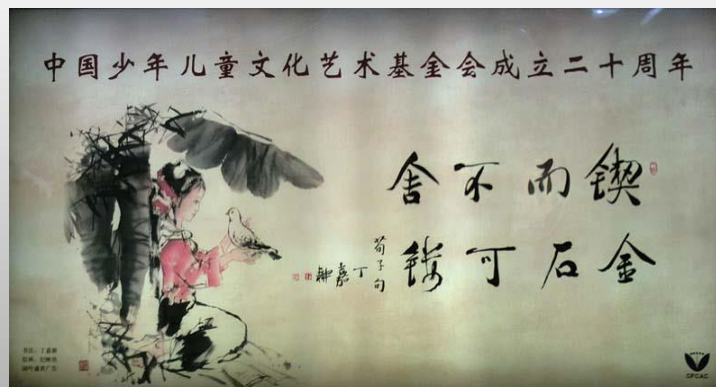 中国少年儿童文化艺术基金会成立二十周年
锲而不舍
金石可镂
荀子句
丁嘉耕
书法：丁嘉耕
CFCAC